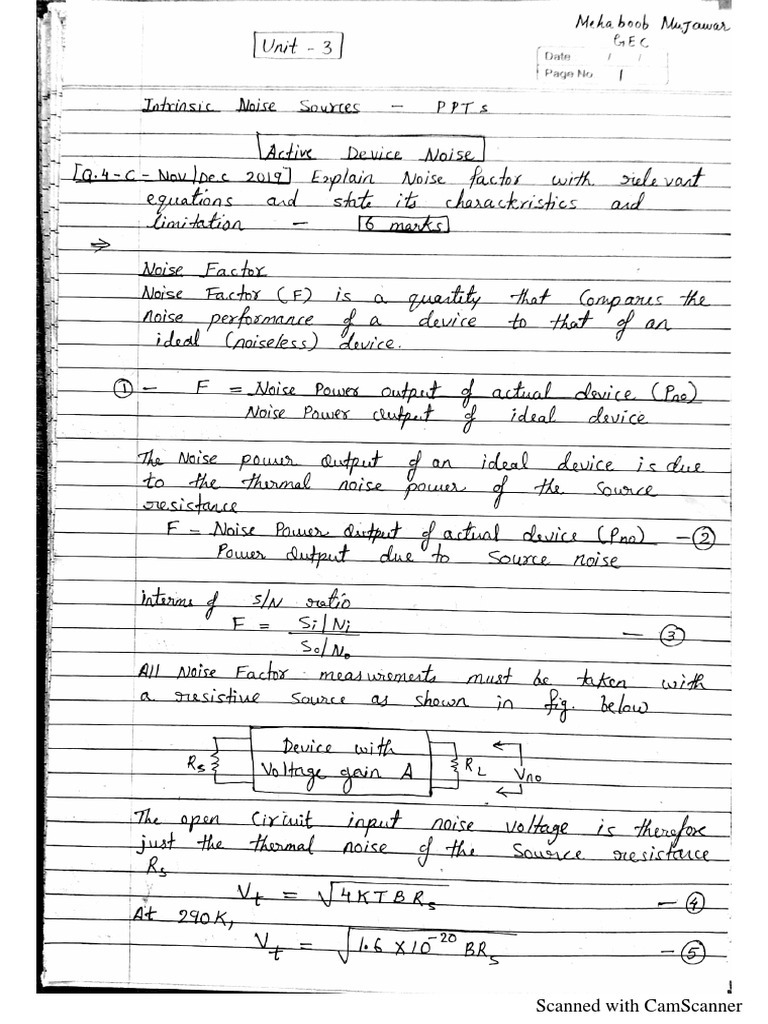 Mehaboob Mujawar
GEC
Unit - 3
Date / /
Page No 1
Intrinsic Noise Sources - PPTs
Active Device Noise
[Q.4-C - Nov/Dec 2019] Explain Noise factor with relevant
equations and state its characteristics and
limitation - 6 marks
⇒
Noise Factor
Noise Factor (F) is a quantity that compares the
noise performance of a device to that of an
ideal (noiseless) device.
① - F = Noise Power output of actual device (Pno)
Noise Power output of ideal device
The Noise power output of an ideal device is due
to the thermal noise power of the source
resistance
F = Noise Power Output of actual device (Pno) - ②
Power Output due to source noise
interms of S/N ratio
F = Si/Ni
- ③
So/No
All Noise Factor measurements must be taken with
a resistive source as shown in fig. below
Device with
Voltage gain A
Rs
RL
Vno
The open Circuit input noise voltage is therefore
just the thermal noise of the source resistance
Rs
Vt = √4KTBRs - ④
At 290K,
Vt = √1.6 X 10⁻²⁰ BRs - ⑤
Scanned with CamScanner